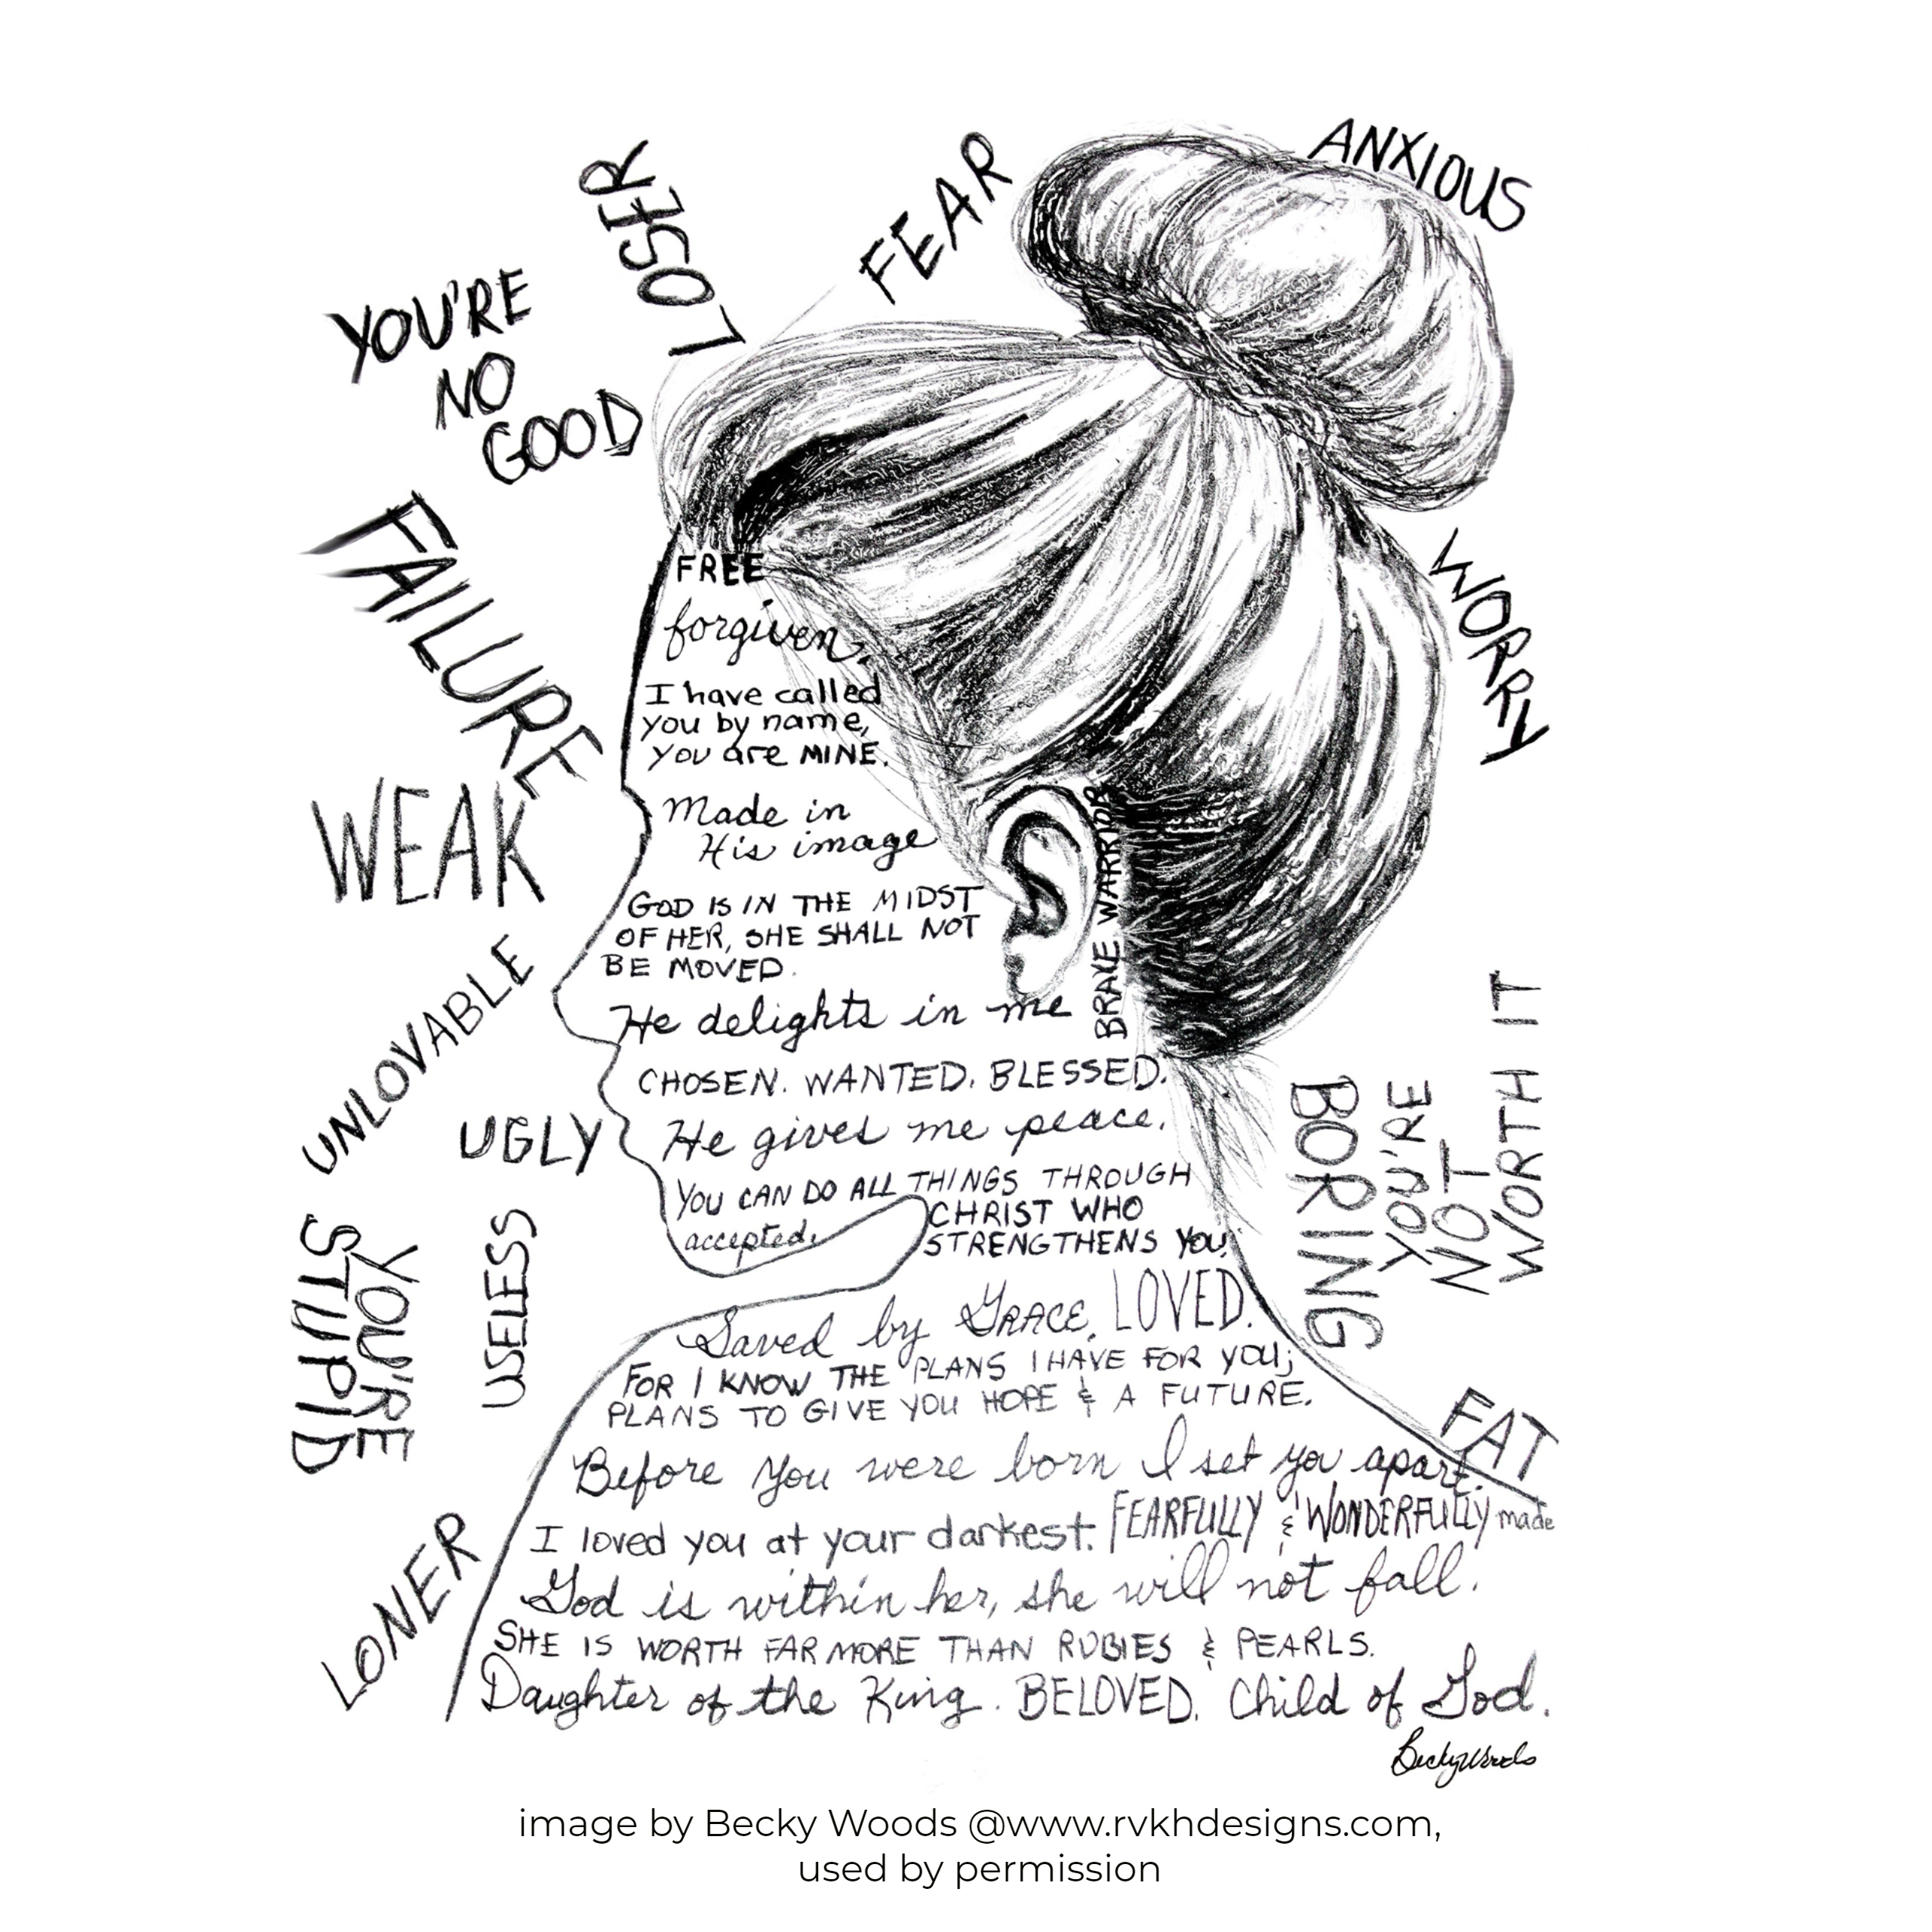 ANXIOUS
FEAR
LOSER
YOU'RE
NO
GOOD
FAILURE
WORRY
WEAK
UNLOVABLE
UGLY
USELESS
YOU'RE
STUPID
LONER
BORING
YOU'RE
NOT
WORTH IT
FAT
FREE
forgiven.
I have called
you by name,
you are MINE.
Made in
His image
GOD IS IN THE MIDST
OF HER, SHE SHALL NOT
BE MOVED.
BRAVE WARRIOR
He delights in me
CHOSEN. WANTED. BLESSED.
He gives me peace.
YOU CAN DO ALL THINGS THROUGH
CHRIST WHO
accepted.
STRENGTHENS YOU.
Saved by GRACE. LOVED.
FOR I KNOW THE PLANS I HAVE FOR YOU;
PLANS TO GIVE YOU HOPE & A FUTURE.
Before you were born I set you apart.
I loved you at your darkest. FEARFULLY & WONDERFULLY made
God is within her, she will not fall.
SHE IS WORTH FAR MORE THAN RUBIES & PEARLS.
Daughter of the King. BELOVED. Child of God.
Becky Woods
image by Becky Woods @www.rvkhdesigns.com,
used by permission